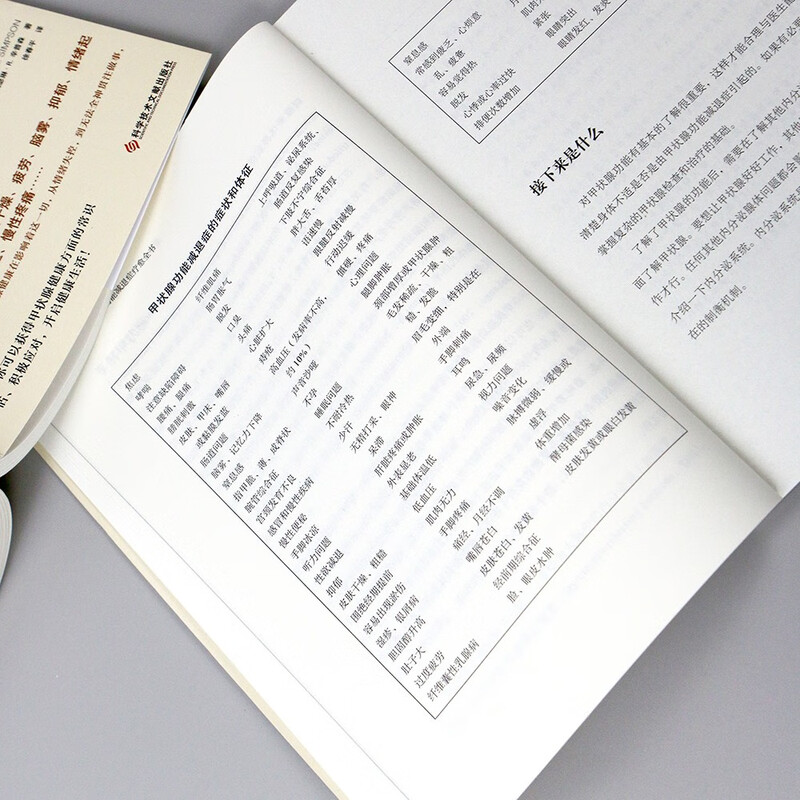 SIMPSON 著
译
科学技术文献出版社
干燥、疲劳、脑雾、抑郁、情绪起
慢性疼痛……
腺健康在影响着这一切,从情绪失控,到无法全神贯注做事,
你可以获得甲状腺健康方面的常识
积极应对,开启健康生活!
能减退症疗愈全书
甲状腺功能减退症的症状和体征
焦虑
哮喘
注意缺陷障碍
膀胱刺激
皮肤、甲床、嘴唇
或黏膜发蓝
肠道问题
脑雾、记忆力下降
窒息感
指甲脆、薄、或脊状
腕管综合征
宫颈发育不良
感冒和慢性疾病
慢性便秘
手脚冰凉
听力问题
性欲减退
抑郁
皮肤干燥、粗糙
围绝经期提前
容易出现淤伤
湿疹、银屑病
胆固醇升高
肚子大
过度疲劳
纤维囊性乳腺病
纤维肌痛
肠胃胀气
脱发
口臭
头痛
心脏扩大
痔疮
高血压(发病率不高,
约10%)
声音沙哑
不孕
睡眠问题
不耐冷热
少汗
无精打采、眼神
呆滞
肝脏疼痛或肿胀
外表显老
基础体温低
低血压
肌肉无力
手脚疼痛
痛经、月经不调
嘴唇苍白
皮肤苍白、发黄
经前期综合征
脸、眼皮水肿
上呼吸道、泌尿系统、
肠道反复感染
下肢不宁综合征
胖大舌、舌苔厚
语速慢
跟腱反射减慢
行动迟缓
僵硬、疼痛
心理问题
腿脚肿胀
颈部增厚或甲状腺肿
毛发稀疏、干燥、粗
糙、发脆
眉毛变细,特别是在
外端
手脚刺痛
耳鸣
尿急、尿频
视力问题
嗓音变化
脉搏微弱、缓慢或
虚浮
体重增加
酵母菌感染
皮肤发黄或眼白发黄
窒息感
常感到疲乏、心烦意
乱、疲惫
容易觉得热
脱发
心悸或心率过快
排便次数增加
紧张
眼睛突出
眼睛发红、发炎
接下来是什么
对甲状腺功能有基本的了解很重要,这样才能合理与医生
清楚身体不适是否是由甲状腺功能减退症引起的。如果有必要
掌握复杂的甲状腺检查和治疗的基础。
了解了甲状腺的功能后,需要在了解其他内分
面了解甲状腺。要想让甲状腺好好工作,其他
作才行。任何其他内分泌腺体问题都会
介绍一下内分泌系统。内分泌系统
在的制衡机制。